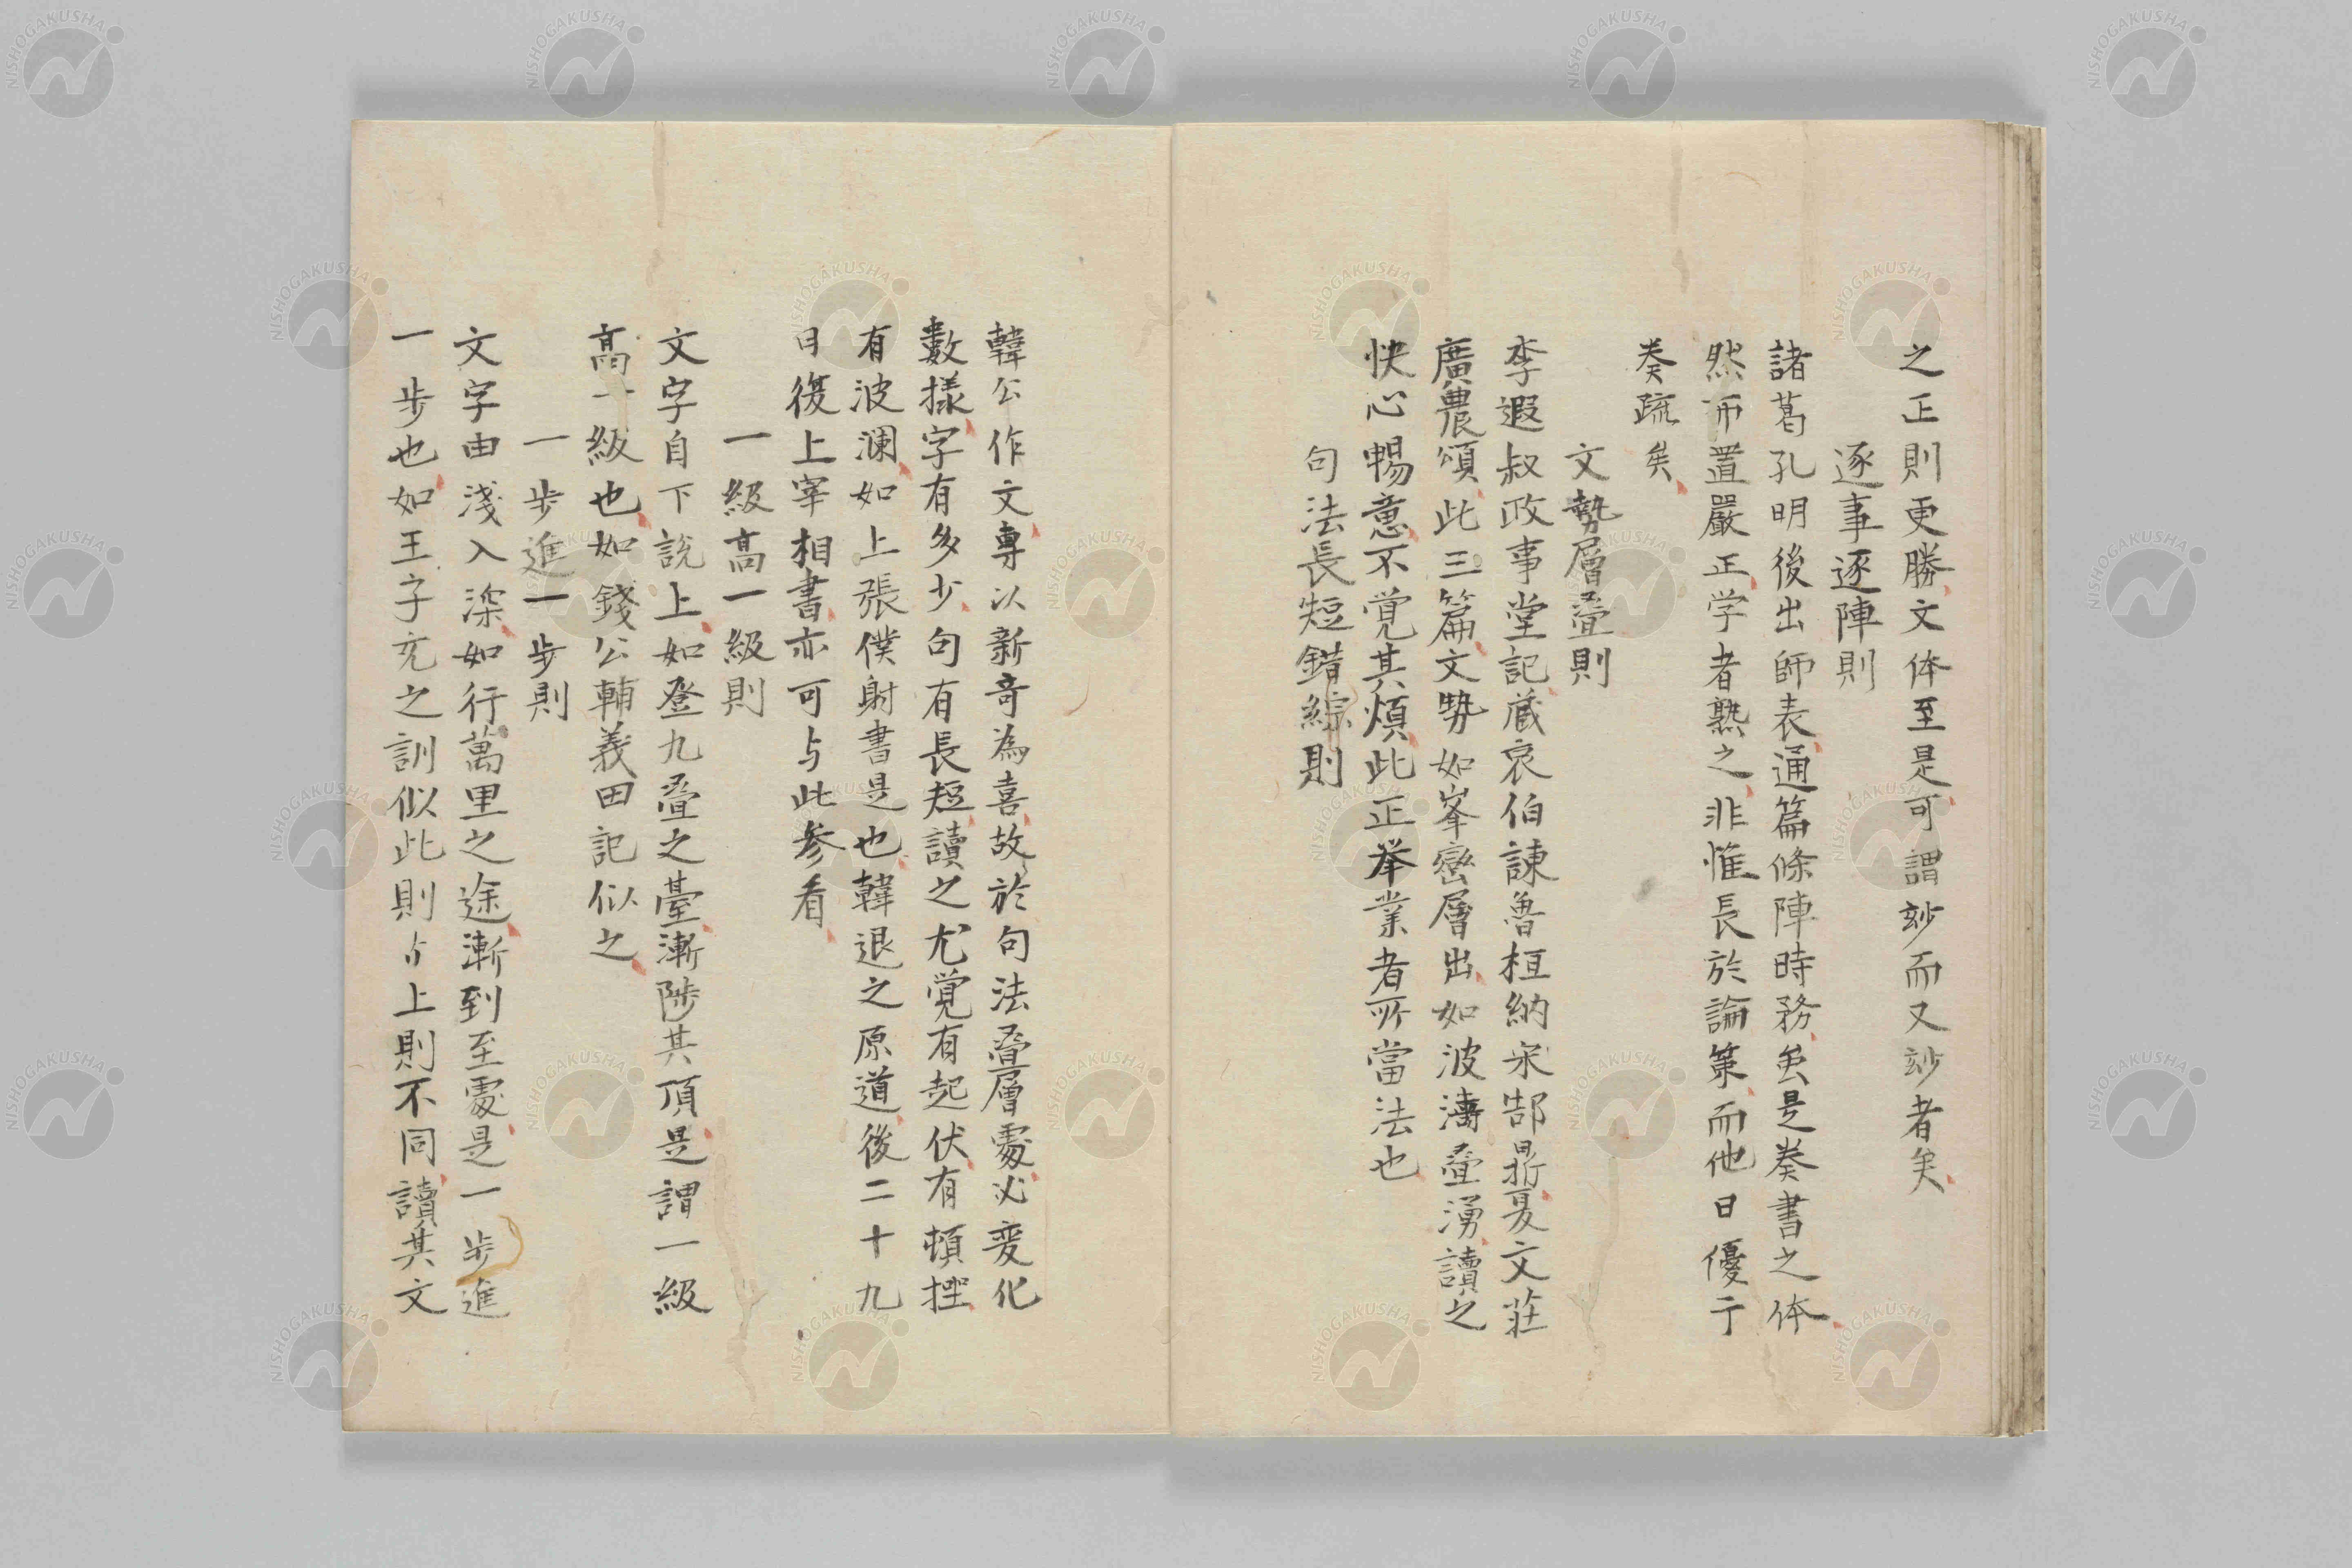 之正則更勝文体至是可謂玅而又玅者矣
逐事逐陣則
諸葛孔明後出師表通篇條陣時務矣是奏書之体
然布置嚴正学者熟之非惟長於論策而他日優于
奏疏矣
文勢層疊則
李遐叔政事堂記蔵哀伯諫魯桓納宋郜鼎夏文莊
廣農頌此三篇文勢如峯巒層出如波濤疊湧讀之
快心暢意不覚其煩此正挙業者所當法也
句法長短錯綜則
韓公作文專以新奇為喜故於句法疊層處必变化
數様字有多少句有長短讀之尤覚有起伏有頓挫
有波瀾如上張僕射書是也韓退之原道後二十九
日復上宰相書亦可与此参看
一級高一級則
文字自下說上如登九疊之臺漸陟其頂是謂一級
高一級也如錢公輔義田記似之
一歩進一歩則
文字由淺入深如行萬里之途漸到至處是一歩進
一歩也如王子充之訓似此則与上則不同讀其文